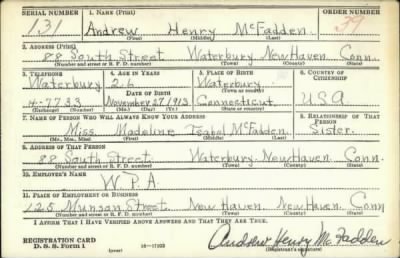 SERIAL NUMBER 1. NAME (Print) ORDER NUMBER
131 Andrew Henry McFadden 39
(First) (Middle) (Last)
2. ADDRESS (Print)
88 South Street Waterbury New Haven Conn.
(Number and street or R. F. D. number) (Town) (County) (State)
3. TELEPHONE 4. AGE IN YEARS 5. PLACE OF BIRTH 6. COUNTRY OF CITIZENSHIP
Waterbury 26 Waterbury
DATE OF BIRTH (Town or county)
4-7733 November 27 1913 Connecticut USA
(Exchange) (Number) (Mo.) (Day) (Yr.) (State or country)
7. NAME OF PERSON WHO WILL ALWAYS KNOW YOUR ADDRESS 8. RELATIONSHIP OF THAT PERSON
Miss Madeline Isabel McFadden Sister
(Mr., Mrs., Miss) (First) (Middle) (Last)
9. ADDRESS OF THAT PERSON
88 South Street Waterbury New Haven Conn.
(Number and street or R. F. D. number) (Town) (County) (State)
10. EMPLOYER'S NAME
W.P.A.
11. PLACE OF EMPLOYMENT OR BUSINESS
125 Munson Street New Haven New Haven Conn
(Number and street or R. F. D. number) (Town) (County) (State)
I AFFIRM THAT I HAVE VERIFIED ABOVE ANSWERS AND THAT THEY ARE TRUE.
REGISTRATION CARD
D. S. S. Form 1 (over) Andrew Henry McFadden
(Registrant's signature)